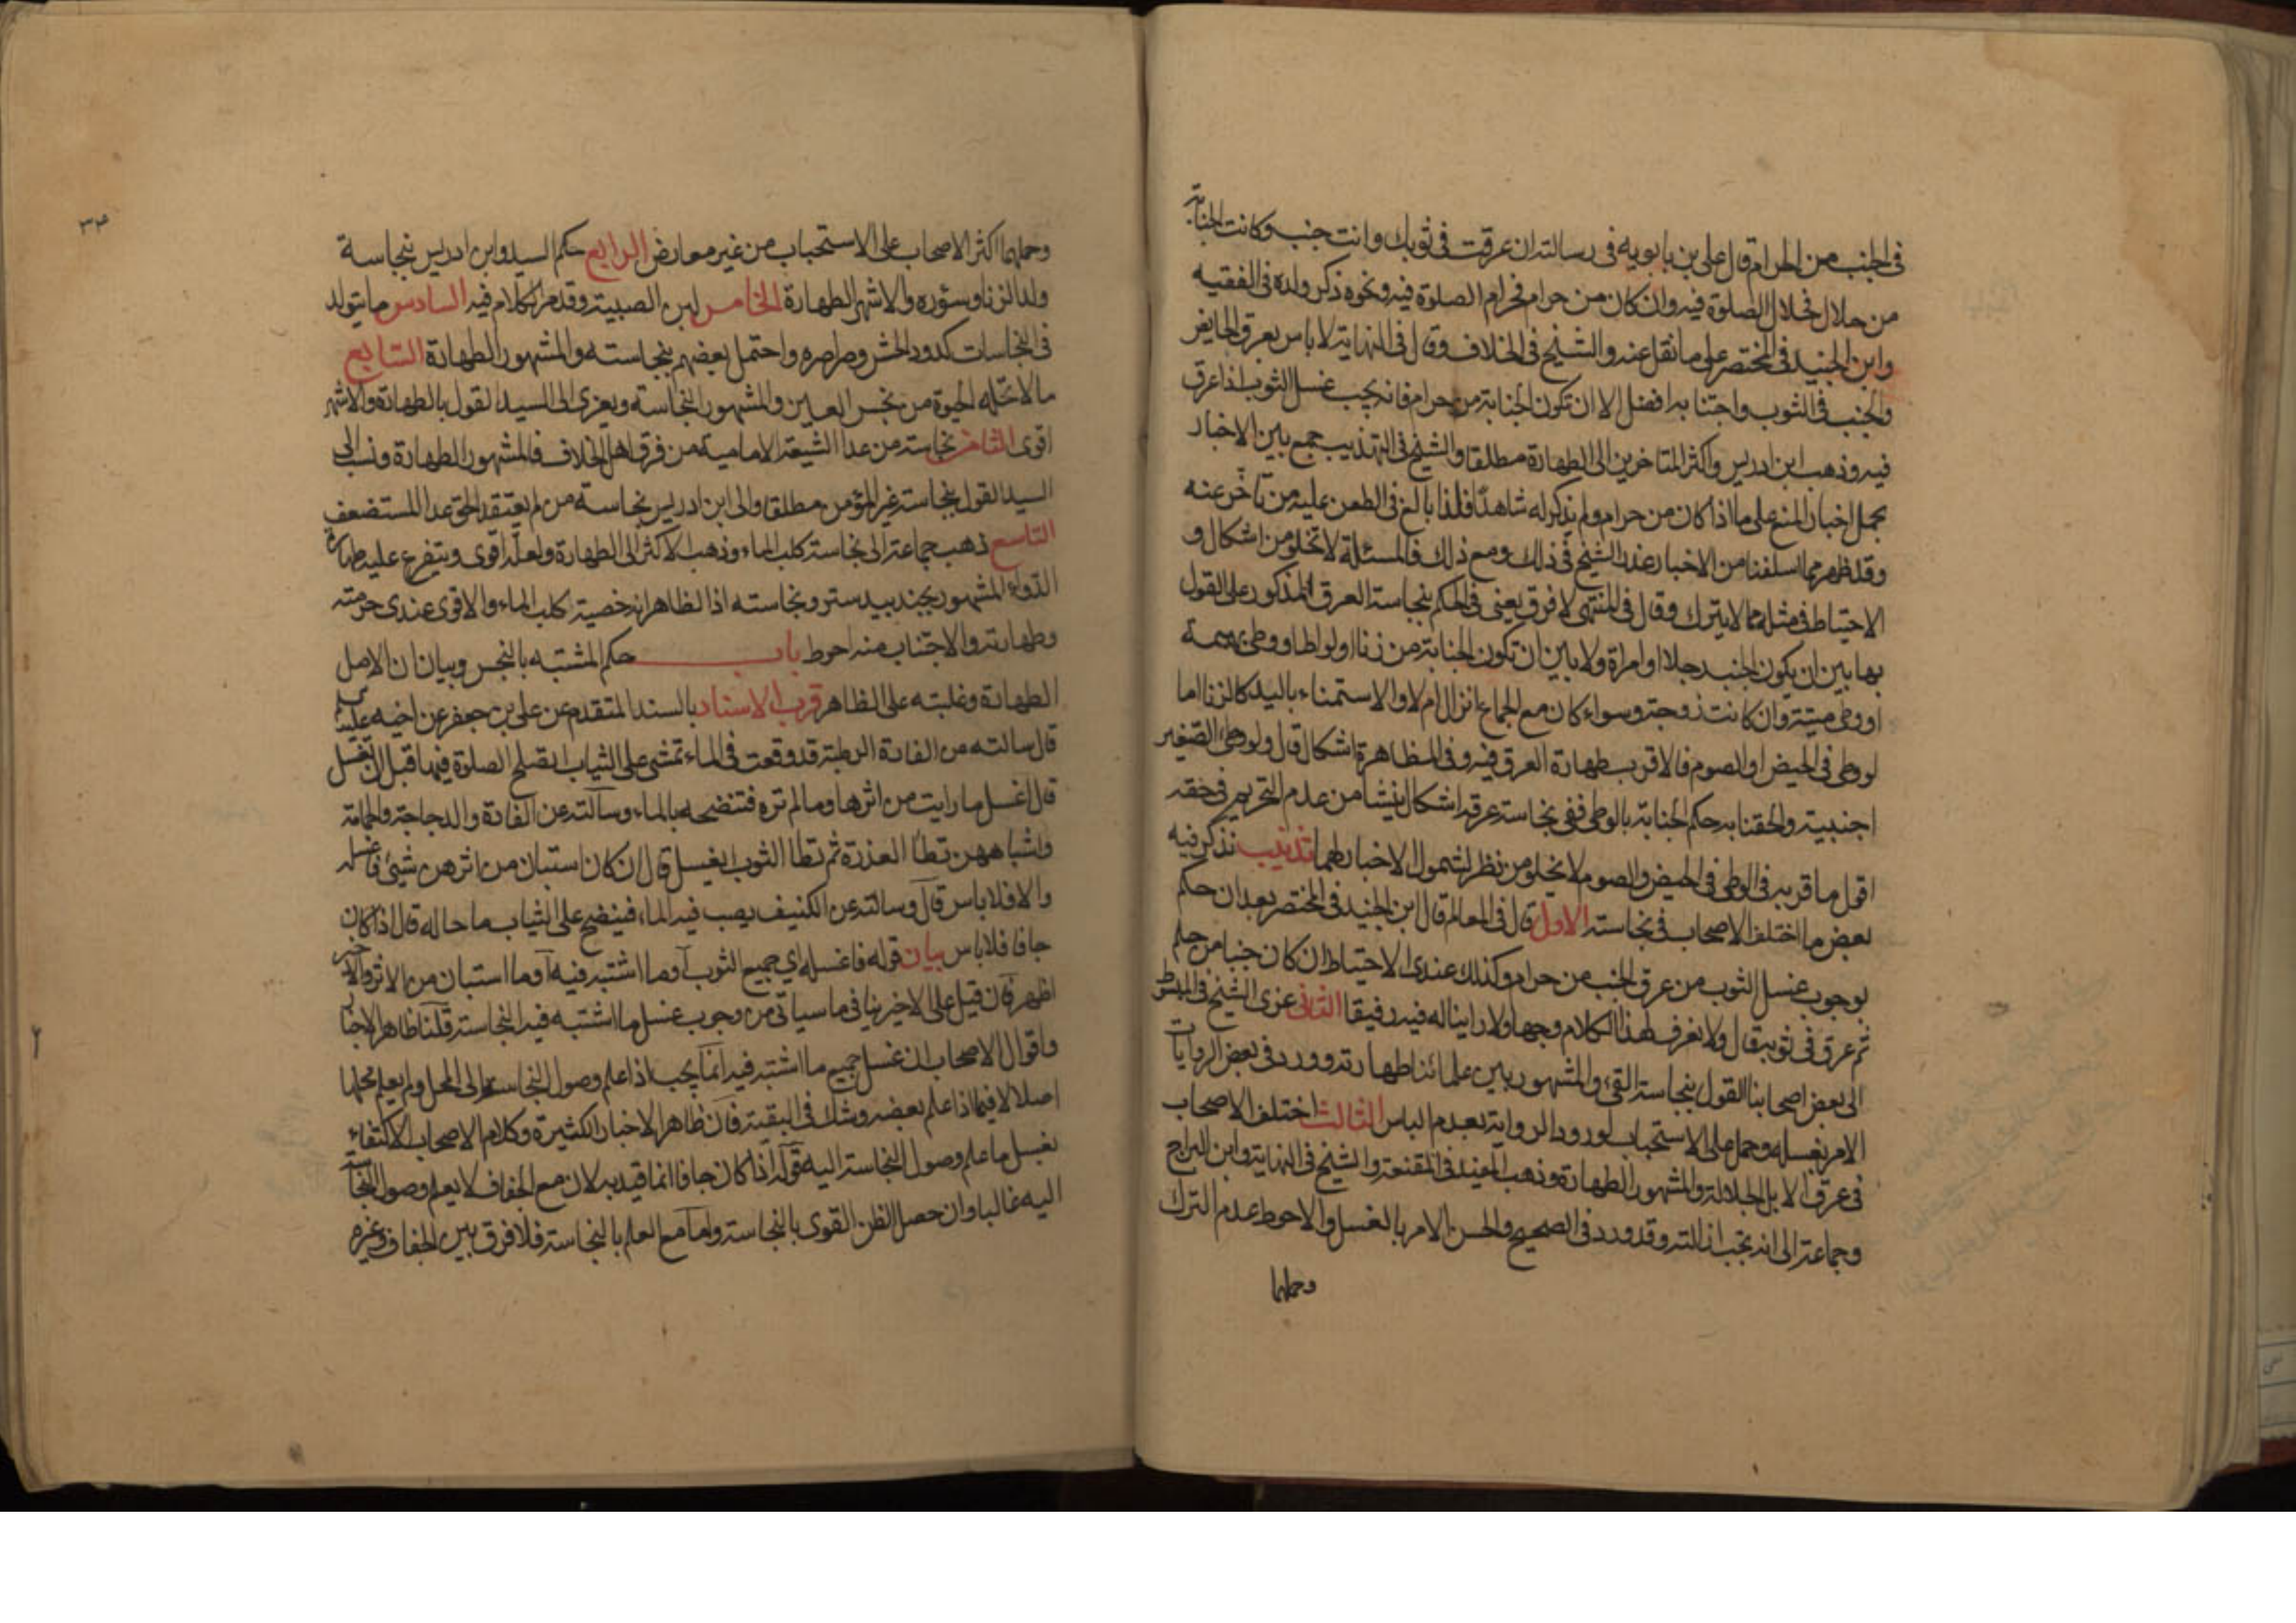 في الجنب من الحرام قال علي بن بابويه في رسالته ان عرقت في ثوبك وانت جنب وكانت الجنابة
من حلال فحلال الصلوة فيه وان كان من حرام فحرام الصلوة فيه ونحوه ذكر ولده في الفقيه
وابن الجنيد في المختصر على ما نقل عنه والشيخ في الخلاف وقال في النهاية لا باس بعرق الحايض
والجنب في الثوب واجتنابه افضل الا ان تكون الجنابة من حرام فانه يجب غسل الثوب اذا عرق
فيه وذهب ابن ادريس واكثر المتاخرين الى الطهارة مطلقا والشيخ في التهذيب جمع بين الاخبار
بحمل اخبار المنع على ما اذا كان من حرام ولم يذكر له شاهدا فلذا بالغ في الطعن عليه من تاخر عنه
وقد ظهر مما اسلفنا من الاخبار عذر الشيخ في ذلك ومع ذلك فالمسئلة لا تخلو من اشكال و
الاحتياط في مثله مما لا يترك وقال في المنتهى لا فرق يعني في الحكم بنجاسة العرق المذكور على القول
بها بين ان يكون الجنب رجلا او امراة ولا بين ان تكون الجنابة من زنا او لواط او وطي بهيمة
او وطي ميتة وان كانت زوجته وسواء كان مع الجماع انزال ام لا والاستمناء باليد كالزنا اما
لو وطي في الحيض او الصوم فالاقرب طهارة العرق فيه وفي المظاهرة اشكال قال ولو وطئ الصغير
اجنبية والحقنا به حكم الجنابة بالوطي ففي نجاسة عرقه اشكال ينشا من عدم التحريم في حقه
اقول ما قربه في الوطي في الحيض والصوم لا يخلو من نظر لشمول الاخبار لهما تذنيب نذكر فيه
بعض ما اختلف الاصحاب في نجاسته الاول قال في المعالم قال ابن الجنيد في المختصر بعد ان حكم
بوجوب غسل الثوب من عرق الجنب من حرام وكذلك عندي الاحتياط ان كان جنبا من حلم
ثم عرق في ثوبه قال ولا نعرف لهذا الكلام وجها ولا راينا له فيه رفيقا الثاني عزى الشيخ في المبسوط
الى بعض اصحابنا القول بنجاسة القيء والمشهور بين علمائنا طهارته وورد في بعض الروايات
الامر بغسله وحمل على الاستحباب لورود الرواية بعدم الباس الثالث اختلف الاصحاب
في عرق الابل الجلالة والمشهور الطهارة وذهب المفيد في المقنعة والشيخ في النهاية وابن البراج
وجماعة الى انه يجب ازالته وقد ورد في الصحيح والحسن الامر بالغسل والاحوط عدم الترك
وحملهما
٣٤
وحملهما اكثر الاصحاب على الاستحباب من غير معارض الرابع حكم السيد وابن ادريس بنجاسة
ولد الزنا وسؤره والاشهر الطهارة الخامس لبن الصبية وقد مر الكلام فيه السادس ما يتولد
في النجاسات كدود الحش وصراصره واحتمل بعضهم نجاسته والمشهور الطهارة السابع
ما لا تحله الحيوة من نجس العين والمشهور النجاسة ويعزى الى السيد القول بالطهارة والاشهر
اقوى الثامن نجاسة من عدا الشيعة الامامية من فرق اهل الخلاف فالمشهور الطهارة ونسب الى
السيد القول بنجاسة غير المؤمن مطلقا والى ابن ادريس نجاسة من لم يعتقد الحق عدا المستضعف
التاسع ذهب جماعة الى نجاسة كلب الماء وذهب الاكثر الى الطهارة ولعله اقوى ويتفرع عليه طهارة
الدواء المشهور بجند بيدستر ونجاسته اذ الظاهر انه خصية كلب الماء والاقوى عندي حرمته
وطهارته والاجتناب منه احوط باب حكم المشتبه بالنجس وبيان ان الاصل
الطهارة وغلبته على الظاهر قرب الاسناد بالسند المتقدم عن علي بن جعفر عن اخيه عليه السلم
قال سالته عن الفارة الرطبة قد وقعت في الماء تمشي على الثياب ايصلح الصلوة فيها قبل ان تغسل
قال اغسل ما رايت من اثرها وما لم تره فتنضحه بالماء وسالته عن الفارة والدجاجة والحمامة
واشباههن تطأ العذرة ثم تطا الثوب ايغسل قال ان كان استبان من اثرهن شيئ فاغسله
والا فلا باس قال وسالته عن الكنيف يصب فيه الماء فينضح على الثياب ما حاله قال اذا كان
جافا فلا باس بيان قوله فاغسله اي جميع الثوب او ما اشتبه فيه او ما استبان من الاثر والاخير
اظهر فان قيل على الاخير ينافي ما سياتي من وجوب غسل ما اشتبه فيه النجاسة قلنا ظاهر الاخبار
واقوال الاصحاب ان غسل جميع ما اشتبه فيه انما يجب اذا علم وصول النجاسة الى المحل ولم يعلم محلها
اصلا لا فيما اذا علم بعضه وشك في البقية فان ظاهر الاخبار الكثيرة وكلام الاصحاب الاكتفاء
بغسل ما علم وصول النجاسة اليه قوله اذا كان جافا انما قيد به لان مع الجفاف لا يعلم وصول النجاسة
اليه غالبا وان حصل الظن القوي بالنجاسة واما مع العلم بالنجاسة فلا فرق بين الجفاف وغيره